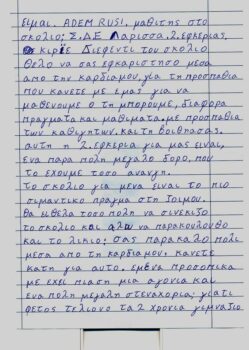 Είμαι. ADEM RUSI, μαθιτης στο
σκολιο; Σ.ΔΕ Λαρισσα. 2. εφκεριας,
κιριε διεφεντι του σκολιο
Θελο να σας εφκαριστησο μεσα
απο την καρδιαμου, για τη προσπαθια
που κανετε με εμας για να
μαθενουμε ο τη μπορουμε, διαφορα
πραγματα και μαθιματα. με προσπαθια
των καθιγητων. και τη βοιθησας.
αυτη η 2. εφκερια για μας ειναι,
ενα παρα πολη μεγαλο δορο, που
το εχουμε τοσο αναγκη.
Το σκολιο για μενα ειναι το πιο
σιμαντικο πραγμα στη Ζοιμου.
θα ιθελα τοσο πολη να συνεχιζο
το σκολιο και αλο να παρακολουθο
και το λικιο; σας παρακαλο πολι
μεσα απο τη καρδιαμου. κανετε
κατη για αυτο. εμενα προσοπικα
με εχει πιαση μια αγονια και
ενα πολη μεγαλη στεναχορια; γιατι
φετος τελιονο τα 2 χρονια γιμνασιο